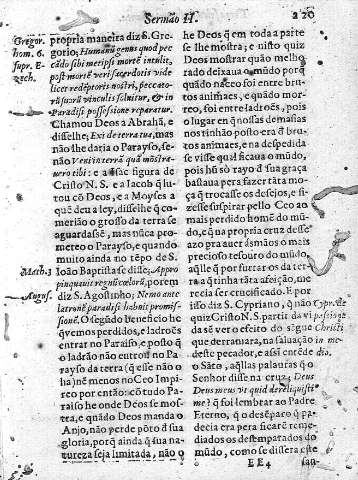 Sermão II. 220
Gregor.
hom. 6.
supr. E-
zech.
propria maneira diz S. Gre-
gorio; Humanũ genus quod pec
cãdo sibi meripsi mortẽ intulit,
post mortẽ veri sacerdotis vide
licet redẽptoris nostri, peccato-
rũ suorũ vinculis soluitur, & in
Paradisi possessione reparatur.
Chamou Deos a Abrahã, e
disselhe, Exi de terra tua, mas
não lhe daria o Parayso, se-
não Veni in terrã quã mõstra-
uero tibi: e a sua figura de
Cristo N. S. e a Iacob q̃ lu-
tou cõ Deos, e a Moyses a
quẽ deu a ley, disselhe q̃ co-
merião o grosso da terra se
aguardassẽ, mas nũca pro-
meteo o Parayso, e quando
muito ainda no tẽpo de S.
Math. 3
Ioão Baptista se disse; Appro
pinquauit regnũ cœlorũ, porem
Augus.
diz S. Agostinho; Nemo ante
latronẽ paradisi habuit promis-
sionẽ. O segundo beneficio he
que vemos perdidos, e ladroẽs
entrar no Paraiso, e posto q
o ladrão não entrou no Pa-
rayso da terra (q̃ esse não o
ha) nẽ menos no Ceo Impi-
reo por então: cõ tudo Pa-
raiso he onde Deos se mos-
tra, e quãdo Deos manda o
Anjo, não perde põto d sua
gloria, porq̃ ainda q̃ sua na-
tureza seja limitada, não o
he Deos q̃ em toda a parte
se lhe mostra; e nisto quiz
Deos mostrar quão melho-
rado deixaua o mũdo, porq̃
quãdo nasceo foi entre brut
tos animaes, e quando mor-
reo, foi entre ladroẽs, pois
o lugar en q̃ nossas demasias
nos tinhão posto era d bru-
tos animaes, e na despedida
se visse qual ficaua o mũdo,
pois hũ sò rayo d sua graça
bastaua pera fazer tãta mo-
ça q̃ trocasse os desejos, e fi-
zesse suspirar pello Ceo ao
mais perdido homẽ do mũ-
do, e q̃ na propria cruz desse
azo pra auer ás mãos o mais
precioso tesouro do mũdo,
aq̃lle q̃ por furtar os da ter-
ra a q̃ tinha tãta afeição, me
recia ser crucificado. E por
isso diz S. Cypriano, q̃ não Cypr. de
quiz Cristo N. S. partir da vi passio
da sẽ ver o efeito do sãgue Christi
que derramára, na saluação in me-
deste pecador, e assi entẽde dio.
o Sãto, aq̃llas palauras q̃ o
Senhor disse na cruz; Deus
Deus meus vt quid dereliquisti
me? q̃ foi lembrar ao Padre
Eterno, q̃ o desẽparo q̃ pa-
decia era pera ficarẽ reme-
diados os desemparados do
mũdo, como se dissera este
E E 4 sau-